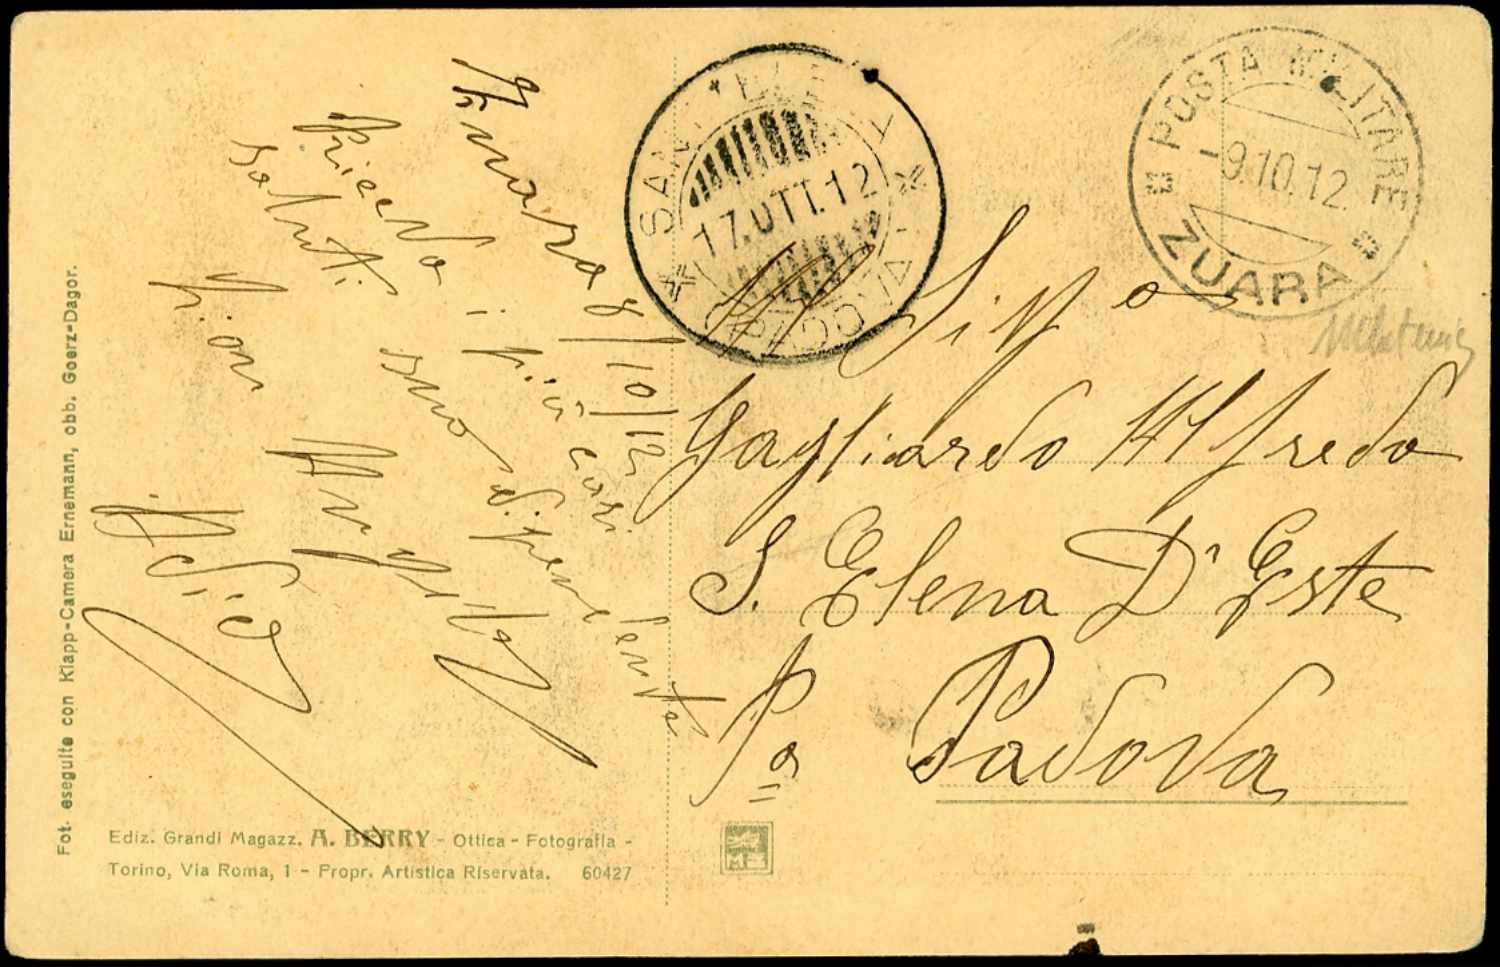 Zuara 8/10/12
Riceva i più cari
saluti. suo dipendente
POSTA MILITARE
-9.10.12.
ZUARA
17.OTT.12
Al Sigr
Gagliardo Alfredo
S. Elena D'Este
Pa Padova
Fot. eseguite con Klapp-Camera Ernemann, obb. Goerz-Dagor.
Ediz. Grandi Magazz. A. BERRY - Ottica - Fotografia -
Torino, Via Roma, 1 - Propr. Artistica Riservata. 60427